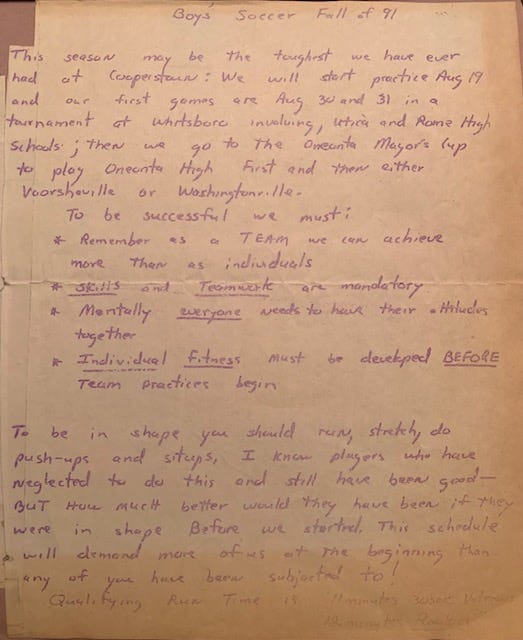 Boy's Soccer Fall of 91
This season may be the toughest we have ever
had at Cooperstown: We will start practice Aug 19
and our first games are Aug 30 and 31 in a
tournament at Whitsboro involving, Utica and Rome High
Schools; then we go to The Oneonta Mayor's Cup
to play Oneonta High First and then either
Voorsheville or Washingtonville.
To be successful we must:
* Remember as a TEAM we can achieve
more Than as individuals
* Skills and Teamwork are mandatory
* Mentally everyone needs to have their attitudes
together
* Individual fitness must be develped BEFORE
Team practices begin
To be in shape you should run, stretch, do
push-ups and situps, I know players who have
neglected to do this and still have been good—
BUT How much better would They have been if They
were in shape Before we started. This schedule
will demand more of us at The beginning than
any of you have been subjected to!
Qualifying Run Time is 11 minutes 30 sec Veterans
12 minutes Rookies